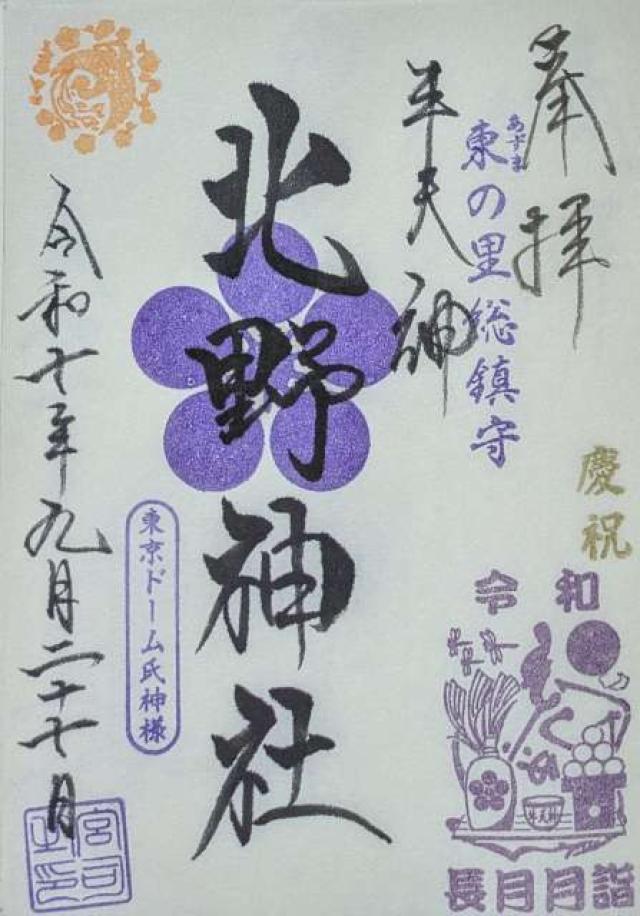 奉拝
あずま
東の里総鎮守
牛天神
北野神社
東京ドーム氏神様
令和七年九月二十七日
宮司之印
慶祝
令和
牛天神
長月月詣